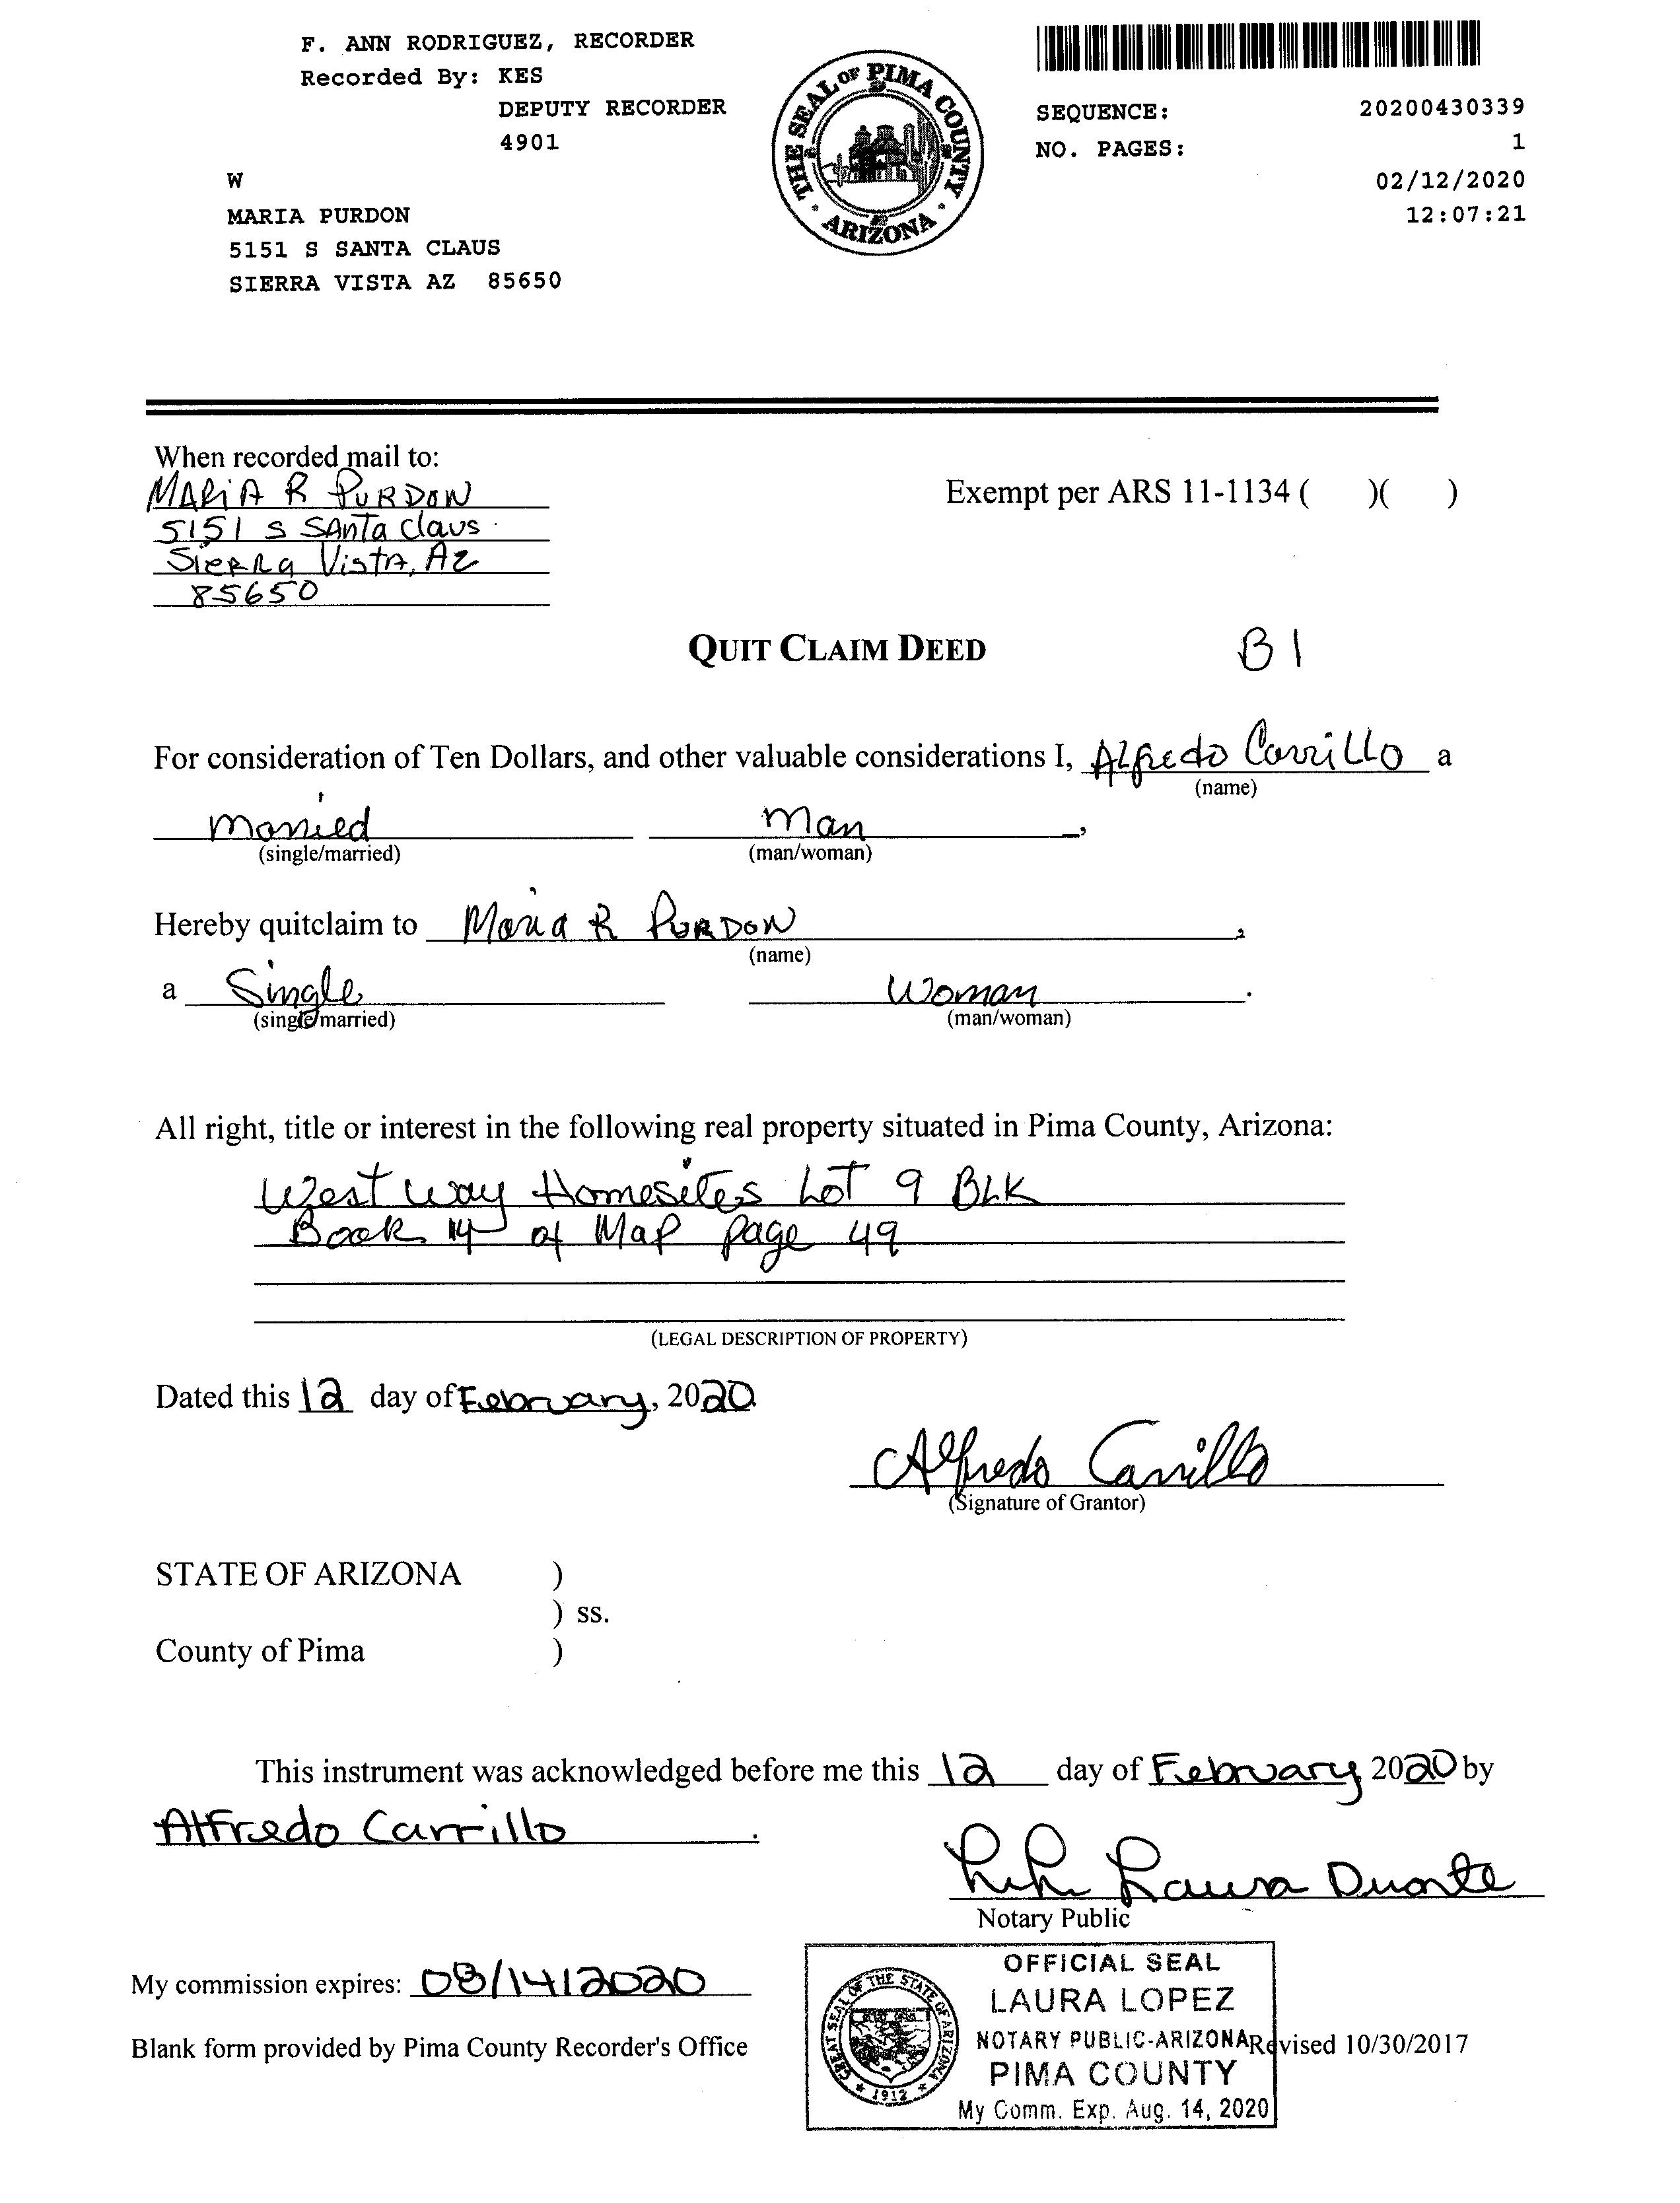 F. ANN RODRIGUEZ, RECORDER
Recorded By: KES
DEPUTY RECORDER
4901
W
MARIA PURDON
5151 S SANTA CLAUS
SIERRA VISTA AZ 85650
THE SEAL OF PIMA COUNTY
ARIZONA
SEQUENCE: 20200430339
NO. PAGES: 1
02/12/2020
12:07:21
When recorded mail to:
MARiA R PURDON
5151 S SANTA Claus
Sierra Vista, Az
85650
Exempt per ARS 11-1134 ( )( )
QUIT CLAIM DEED
B1
For consideration of Ten Dollars, and other valuable considerations I, Alfredo Carrillo a
(name)
married man,
(single/married) (man/woman)
Hereby quitclaim to Maria R PURDON,
(name)
a Single Woman.
(single/married) (man/woman)
All right, title or interest in the following real property situated in Pima County, Arizona:
West way Homesites Lot 9 BLK
Book 14 of Map page 49
(LEGAL DESCRIPTION OF PROPERTY)
Dated this 12 day of February, 2020
Alfredo Carrillo
(Signature of Grantor)
STATE OF ARIZONA )
) ss.
County of Pima )
This instrument was acknowledged before me this 12 day of February 2020 by
Alfredo Carrillo.
Laura Duarte
Notary Public
My commission expires: 08/14/2020
Blank form provided by Pima County Recorder's Office
OFFICIAL SEAL
LAURA LOPEZ
NOTARY PUBLIC-ARIZONA
PIMA COUNTY
My Comm. Exp. Aug. 14, 2020
GREAT SEAL OF THE STATE OF ARIZONA
1912
Revised 10/30/2017